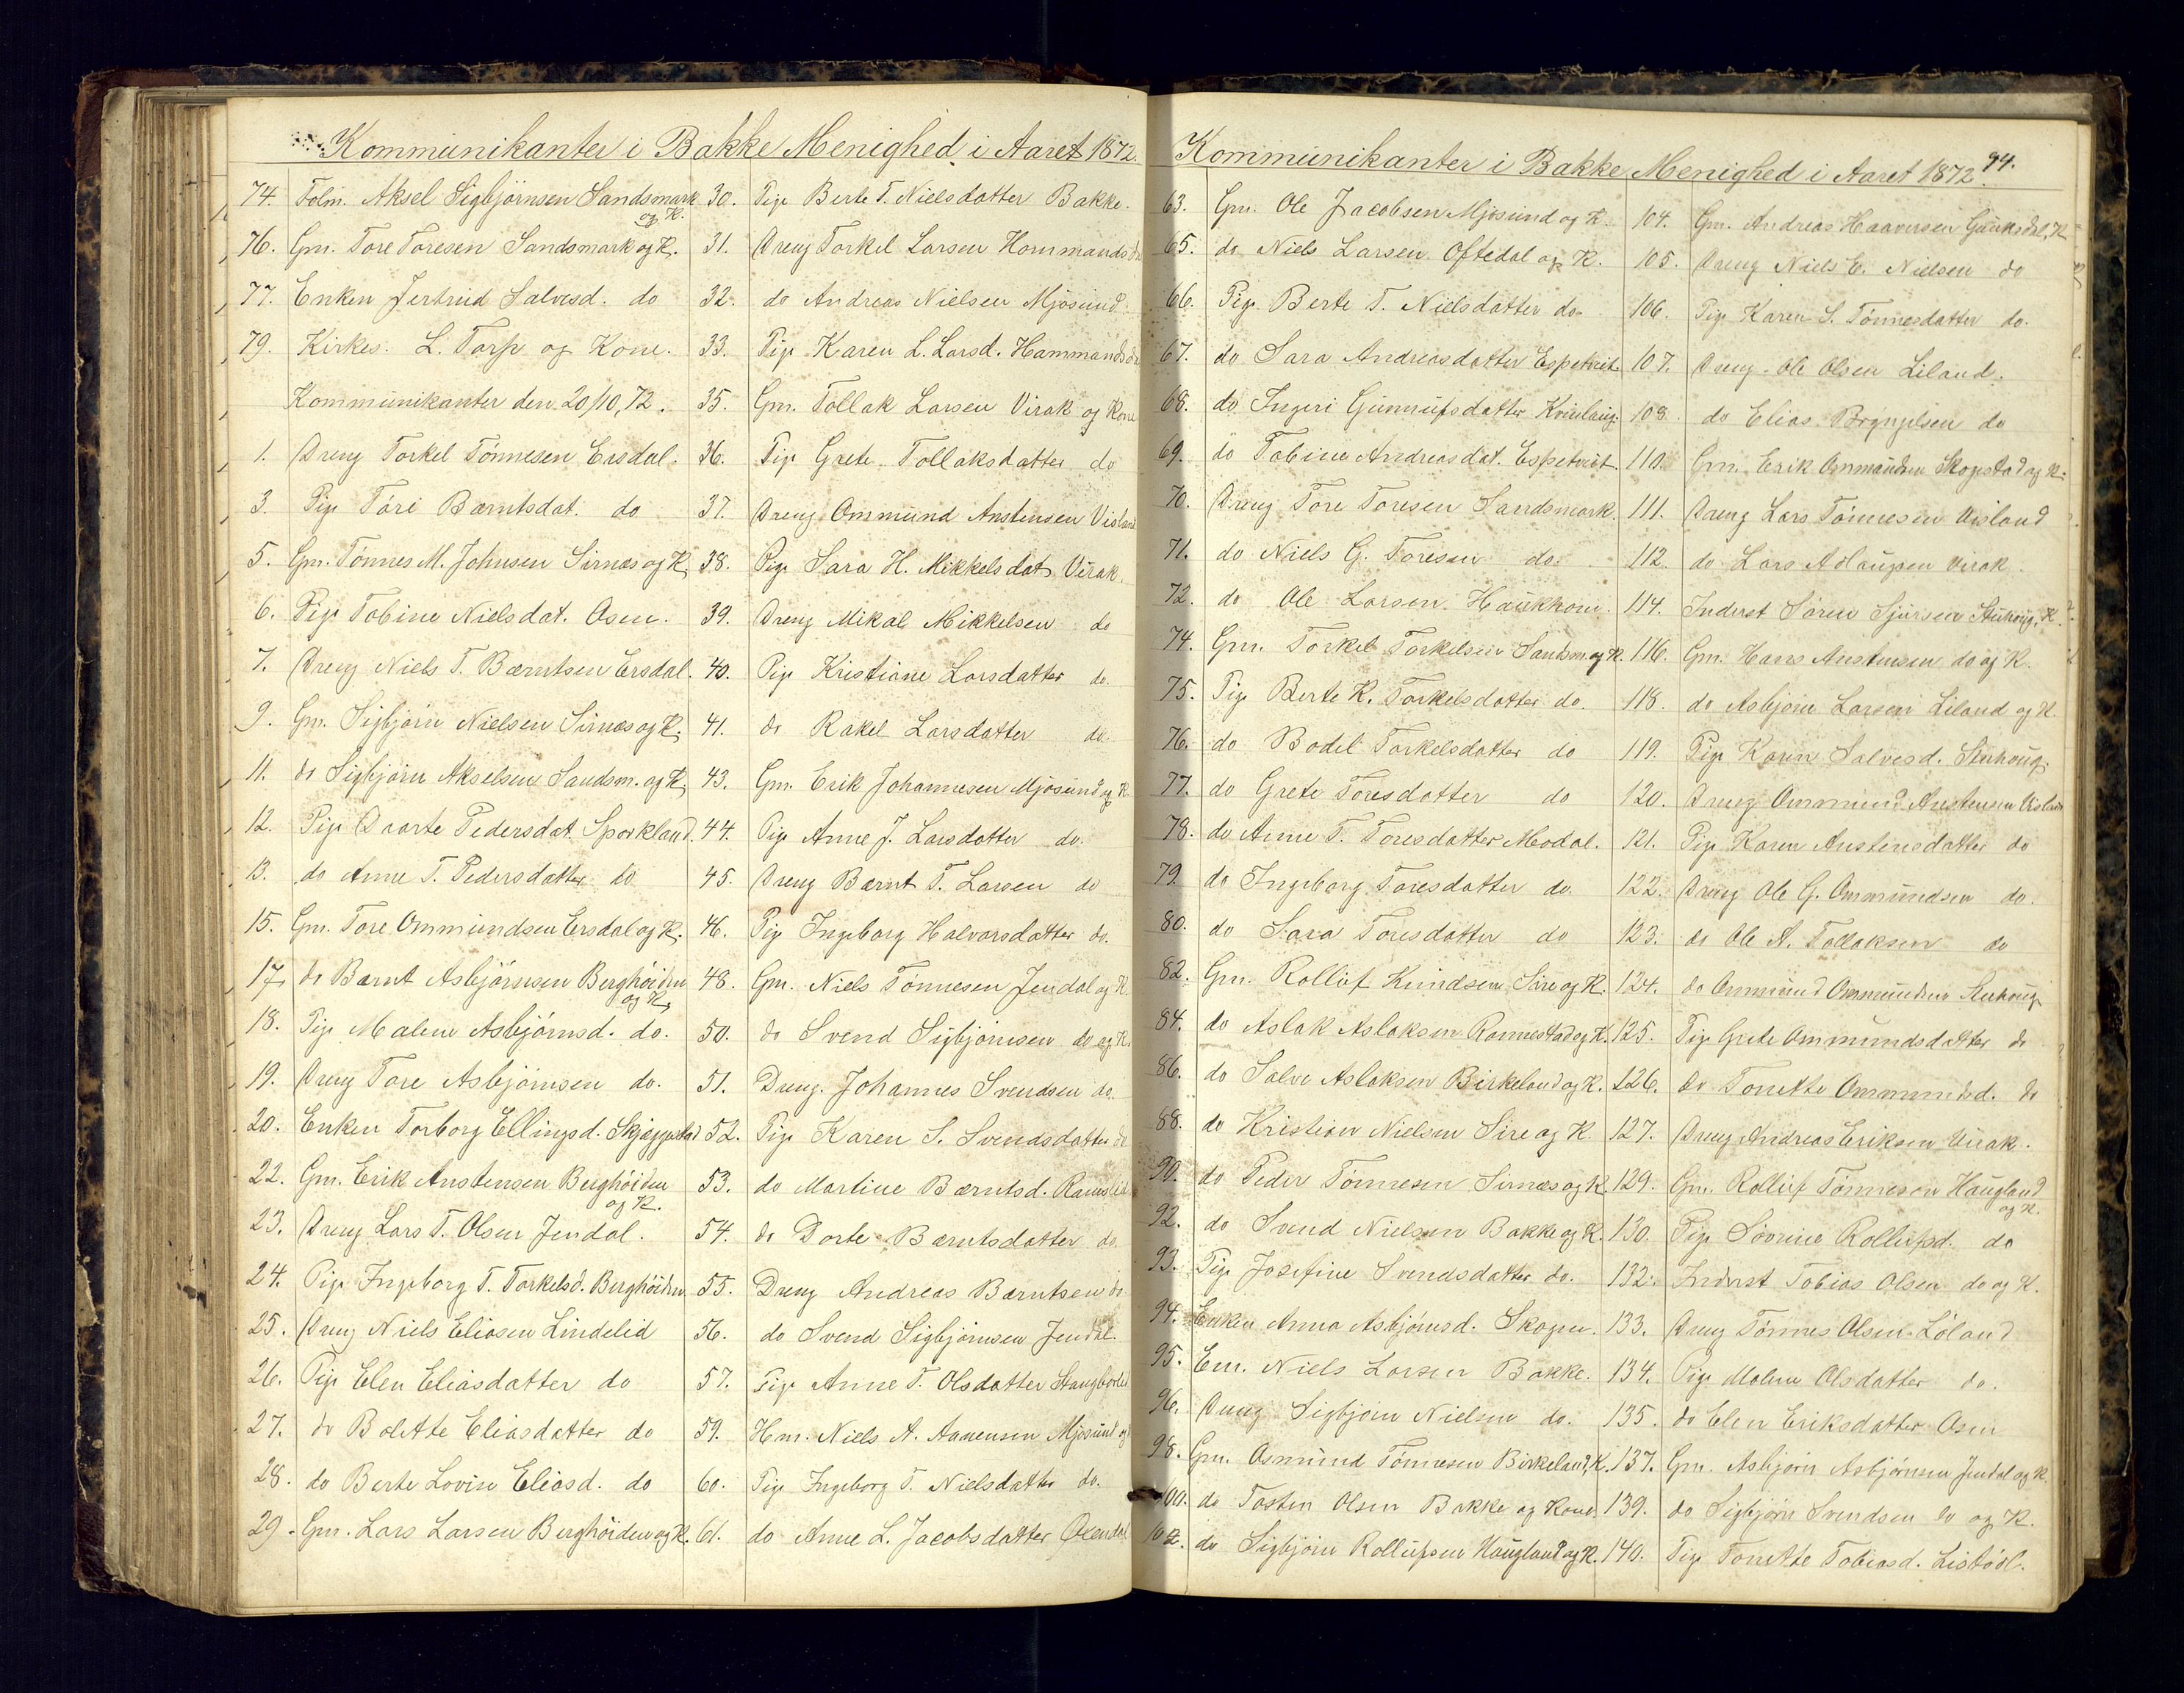 Kommunikanter i Bakke Menighed i Aaret 1872.
74. Folm. Aksel Sigbjörnsen Sandsmark
og K.
76. Gm. Tore Toresen Sandsmark og K.
77. Enken Jertrud Salvesd. do
79. Kirkes. L. Torp og Kone.
Kommunikanter den 20/10, 72.
1. Dreng Torkel Tönnesen Ersdal.
3. Pige Töri Bærntsdat. do
5. Gm. Tönnes M. Johnsen Sirnæs og K.
6. Pige Tobine Nielsdat. Osen.
7. Dreng Niels T. Bærntsen Ersdal.
9. Gm. Sigbjörn Nielsen Sirnæs og K.
11. do Sigbjörn Akselsen Sandsm. og K.
12. Pige Daarte Pedersdat. Sporkland.
13. do Anne T. Pedersdatter do
15. Gm. Tore Ommundsen Ersdal og K.
17. do Bærnt Asbjörnsen Berghöiden
og K.
18. Pige Malene Asbjörnsd. do.
19. Dreng Tore Asbjörnsen do.
20. Enken Torborg Ellingsd. Skjeggestad
22. Gm. Erik Anstensen Berghöiden
og K.
23. Dreng Lars T. Olsen Jendal.
24. Pige Ingeborg T. Torkelsd. Berghöiden
25. Dreng Niels Eliasen Lindelid
26. Pige Elen Eliasdatter do
27. do Bolette Eliasdatter do
28. do Berte Lovise Eliasd. do
29. Gm. Lars Larsen Berghöiden og K.
30. Pige Berte T. Nielsdatter Bakke.
31. Dreng Torkel Larsen Hommands
32. do Andreas Nielsen Mjösund.
33. Pige Karen L. Larsd. Hammands
35. Gm. Tollak Larsen Virak og Kone
36. Pige Grete Tollaksdatter do
37. Dreng Ommund Anstensen Visland
38. Pige Sara H. Mikkelsdat. Virak.
39. Dreng Mikal Mikkelsen do
40. Pige Kristiane Larsdatter do.
41. do Rakel Larsdatter do.
43. Gm. Erik Johannesen Mjösund og K
44. Pige Anne J. Larsdatter do.
45. Dreng Bærnt T. Larsen do
46. Pige Ingeborg Halvorsdatter do.
48. Gm. Niels Tönnesen Jendal og K
50. do Svend Sigbjörnsen do og K.
51. Dreng. Johannes Svendsen do.
52. Pige Karen S. Svendsdatter do
53. do Martine Bærntsd. Ramslid
54. do Dorte Bærntsdatter do.
55. Dreng Andreas Bærntsen do
56. do Svend Sigbjörnsen Jendal.
57. Pige Anne T. Olsdatter
59. Hm. Niels A. Aanensen Mjösund og
60. Pige Ingeborg T. Nielsdatter do.
61. do Anne L. Jacobsdatter Öxendal
Kommunikanter i Bakke Menighed i Aaret 1872.
94.
63. Gm. Ole Jacobsen Mjösund og K.
65. do Niels Larsen Oftedal og K.
66. Pige Berte T. Nielsdatter do
67. do Sara Andreasdatter Espetveit.
68. do Ingeri Gunnufsdatter Kvinlaug.
69. do Tobine Andreasdat. Espetveit.
70. Dreng Tore Toresen Sandsmark.
71. do Niels G. Toresen do.
72. do Ole Larsen Haukhom.
74. Gm. Torkel Torkelsen Sandsm. og K.
75. Pige Berte K. Torkelsdatter do.
76. do Bodel Torkelsdatter do
77. do Grete Toresdatter do
78. do Anne T. Toresdatter Modal.
79. do Ingeborg Toresdatter do.
80. do Sara Toresdatter do
82. Gm. Rolluf Knudsen Sire og K.
84. do Aslak Aslaksen Rannestad og K.
86. do Salve Aslaksen Birkeland og K.
88. do Kristian Nielsen Sire og K.
90. do Peder Tönnesen Sirnæs og K.
92. do Svend Nielsen Bakke og K.
93. Pige Josefine Svendsdatter do.
94. Enken Anna Asbjörnsd. Skogen.
95. Em. Niels Larsen Bakke.
96. Dreng Sigbjörn Nielsen do.
98. Gm. Osmund Tönnesen Birkeland, K.
100. do Tosten Olsen Bakke og Kone
102. do Sigbjörn Rollufsen Haugland og K.
104. Gm. Andreas Haaversen K
105. Dreng Niels E. Nielsen do
106. Pige Karen S. Tönnesdatter do.
107. Dreng Ole Olsen Liland.
108. do Elias Bryngelsen do
110. Gm. Erik Ommundsen Skogstad og K.
111. Dreng Lars Tönnesen Visland
112. do Lars Adlaugsen Virak.
114. Inderst Sören Sjursen Stuhaug, K.
116. Gm. Hans Anstensen do og K.
118. do Asbjörn Larsen Liland og K.
119. Pige Karen Salvesd. Stuhaug.
120. Dreng Ommund Anstensen Visland
121. Pige Karen Anstensdatter do
122. Dreng Ole G. Ommundsen do.
123. do Ole A. Tollaksen do
124. do Ommund Ommundsen Stuhaug.
125. Pige Grete Ommundsdatter do
126. do Tonette Ommundsd. do
127. Dreng Andreas Eriksen Virak.
129. Gm. Rolluf Tönnesen Haugland
og K.
130. Pige Sövrine Rollufsd. do
132. Inderst Tobias Olsen do og K.
133. Dreng Tönnes Olsen Löland
134. Pige Malene Olsdatter do.
135. do Elen Eriksdatter Osen
137. Gm. Asbjörn Asbjörnsen Jendal og K.
139. do Sigbjörn Svendsen do og K.
140. Pige Tonette Tobiasd. Listöl.